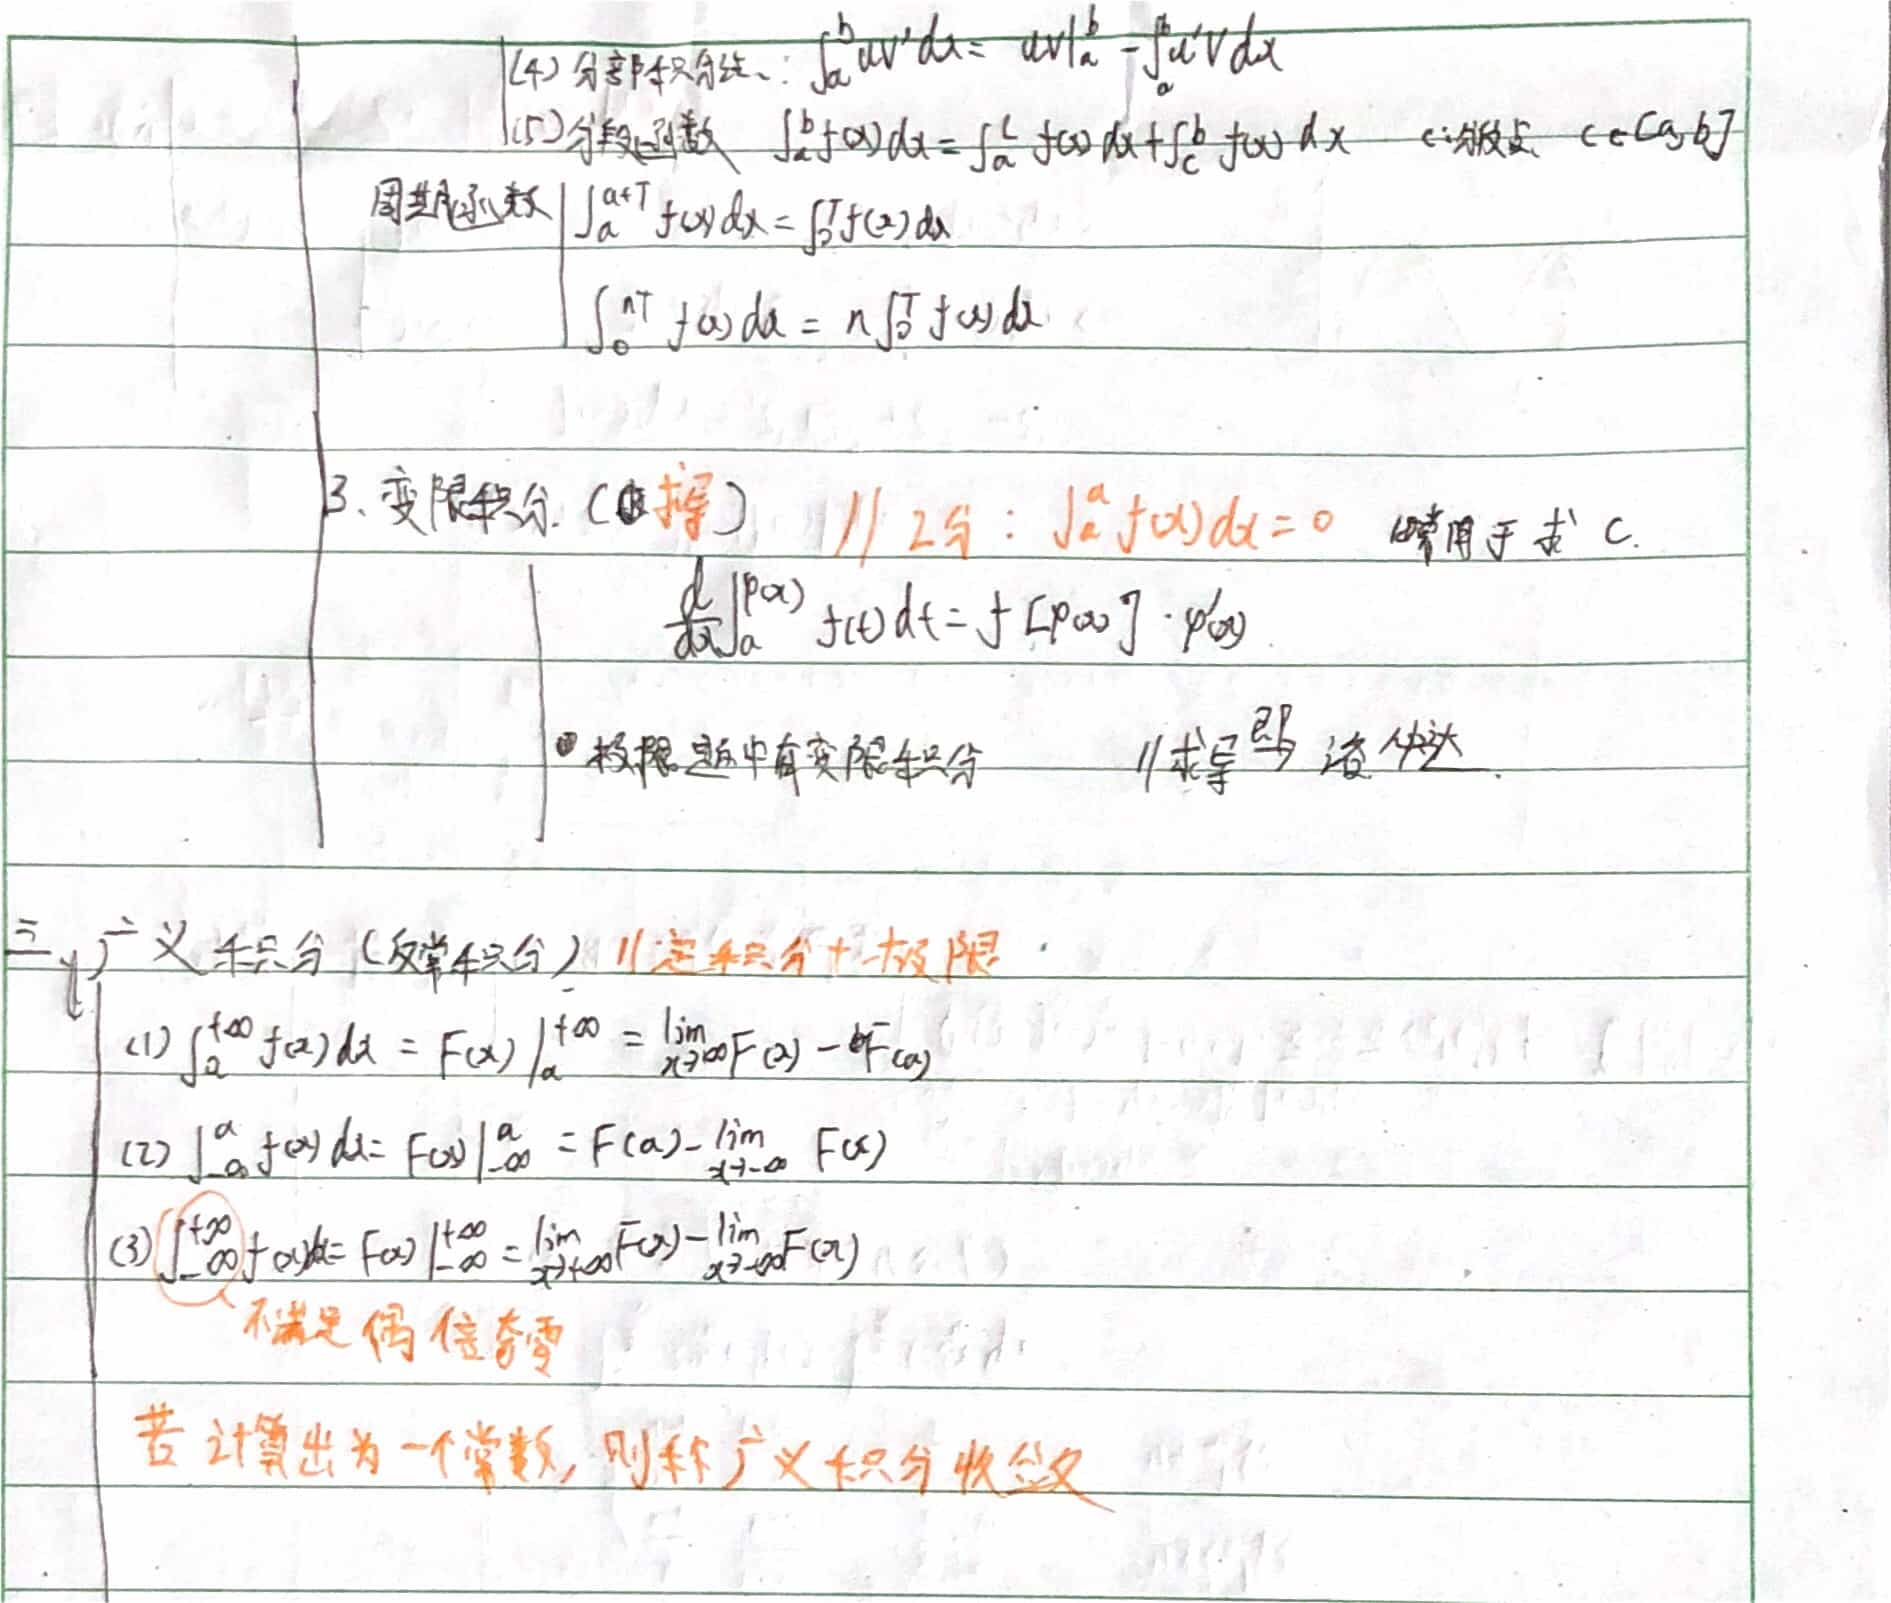 (4) 分部积分法: ∫_a^b uv'dx = uv|_a^b - ∫_a^b u'v dx
(5) 分段函数 ∫_a^b f(x)dx = ∫_a^c f(x)dx + ∫_c^b f(x)dx c:分段点 c∈[a,b]
周期函数 ∫_a^{a+T} f(x)dx = ∫_0^T f(x)dx
∫_0^{nT} f(x)dx = n∫_0^T f(x)dx
3、变限积分.( 导) // 2分: ∫_a^a f(x)dx = 0 常用于求 C.
d/dx ∫_a^{φ(x)} f(t)dt = f[φ(x)]·φ'(x)
极限题中有变限积分 //求导即洛必达.
三、广义积分(反常积分) //定积分+极限
(1) ∫_a^{+∞} f(x)dx = F(x)|_a^{+∞} = lim_{x→∞} F(x) - F(a)
(2) ∫_{-∞}^a f(x)dx = F(x)|_{-∞}^a = F(a) - lim_{x→-∞} F(x)
(3) ∫_{-∞}^{+∞} f(x)dx = F(x)|_{-∞}^{+∞} = lim_{x→+∞} F(x) - lim_{x→-∞} F(x)
不满足偶倍奇零
若计算出为一个常数,则称广义积分收敛